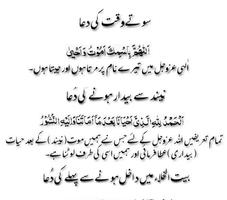 سوتے وقت کی دعا
اَللّٰهُمَّ بِاسْمِكَ اَمُوْتُ وَاَحْیٰی
الٰہی عزوجل میں تیرے نام پر مرتا ہوں اور جیتا ہوں۔
نیند سے بیدار ہونے کی دُعا
اَلْحَمْدُ لِلّٰهِ الَّذِیْٓ اَحْیَانَا بَعْدَ مَآ اَمَاتَنَا وَاِلَیْهِ النُّشُوْرُ
تمام تعریفیں اللہ عزوجل کے لئے جس نے ہمیں موت (نیند) کے بعد حیات
(بیداری) عطا فرمائی اور ہمیں اسی کی طرف لوٹنا ہے۔
بیت الخلاء میں داخل ہونے سے پہلے کی دُعا